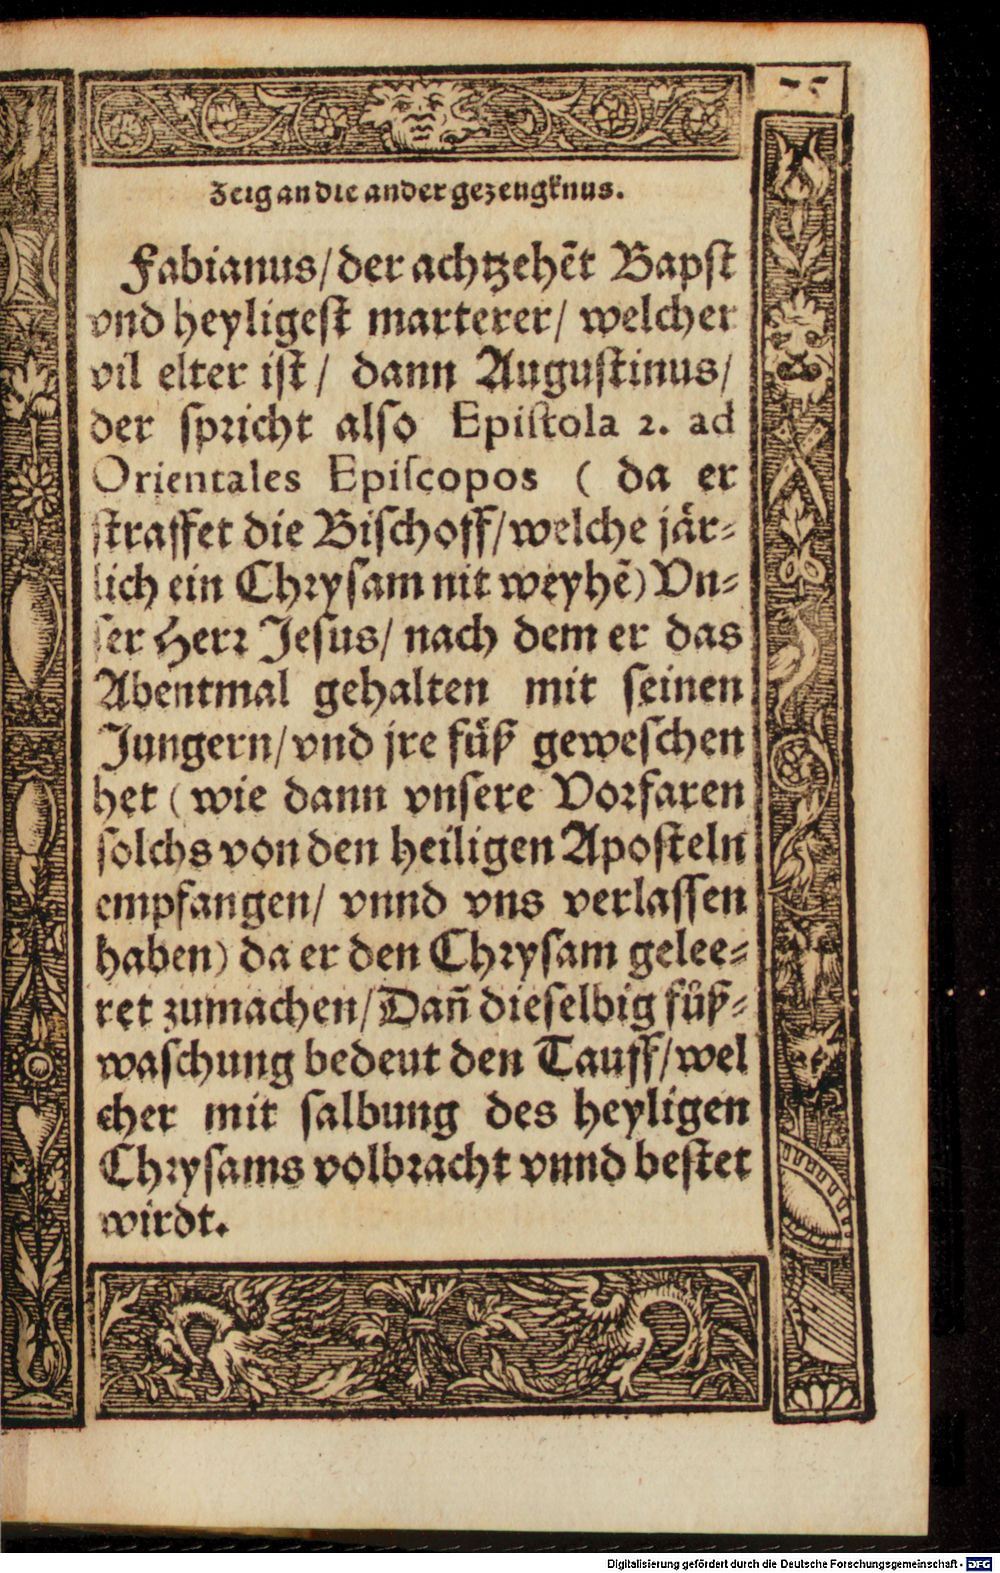 Zeig an die ander gezeugknus.
Fabianus/ der achtzehēt Bapst
vnd heyligest marterer/ welcher
vil elter ist/ dann Augustinus/
der spricht also Epistola 2. ad
Orientales Episcopos ( da er
straffet die Bischoff/ welche jär⸗
lich ein Chrysam nit weyhē) Vn⸗
ser Herr Jesus/ nach dem er das
Abentmal gehalten mit seinen
Jungern/ vnd jre füß geweschen
het ( wie dann vnsere Vorfaren
solchs von den heiligen Aposteln
empfangen/ vnnd vns verlassen
haben) da er den Chrysam gelee⸗
ret zumachen/ Dañ dieselbig fůß⸗
waschung bedeut den Tauff/ wel
cher mit salbung des heyligen
Chrysams volbracht vnnd bestet
wirdt.
Digitalisierung gefördert durch die Deutsche Forschungsgemeinschaft - DFG